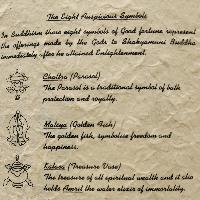 The Eight Auspicious Symbols
In Buddhism these eight symbols of Good fortune represent
the offerings made by the Gods to Shakyamuni Buddha
immediately after he attained Enlightenment.
Chattra (Parasol)
The Parasol is a traditional symbol of both
protection and royalty.
Matsya (Golden Fish)
The golden fish, symbolise freedom and
happiness.
Kalasa (Treasure Vase)
The treasure of all spiritual wealth and it also
holds Amrit the water elixir of immortality.